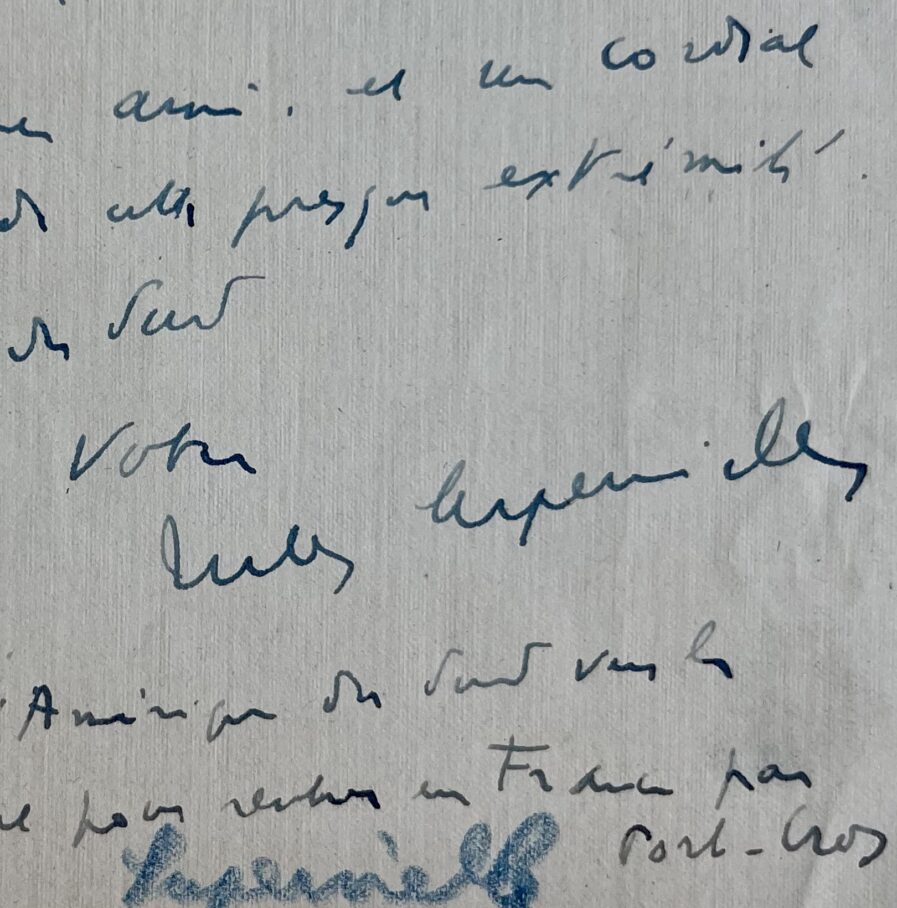 ami. et un cordial
de cette presque extrémité.
du Sud
Votre
Jules Supervielle
'Amérique du Sud vers le
pour rentrer en France par
Port-Cros
Supervielle